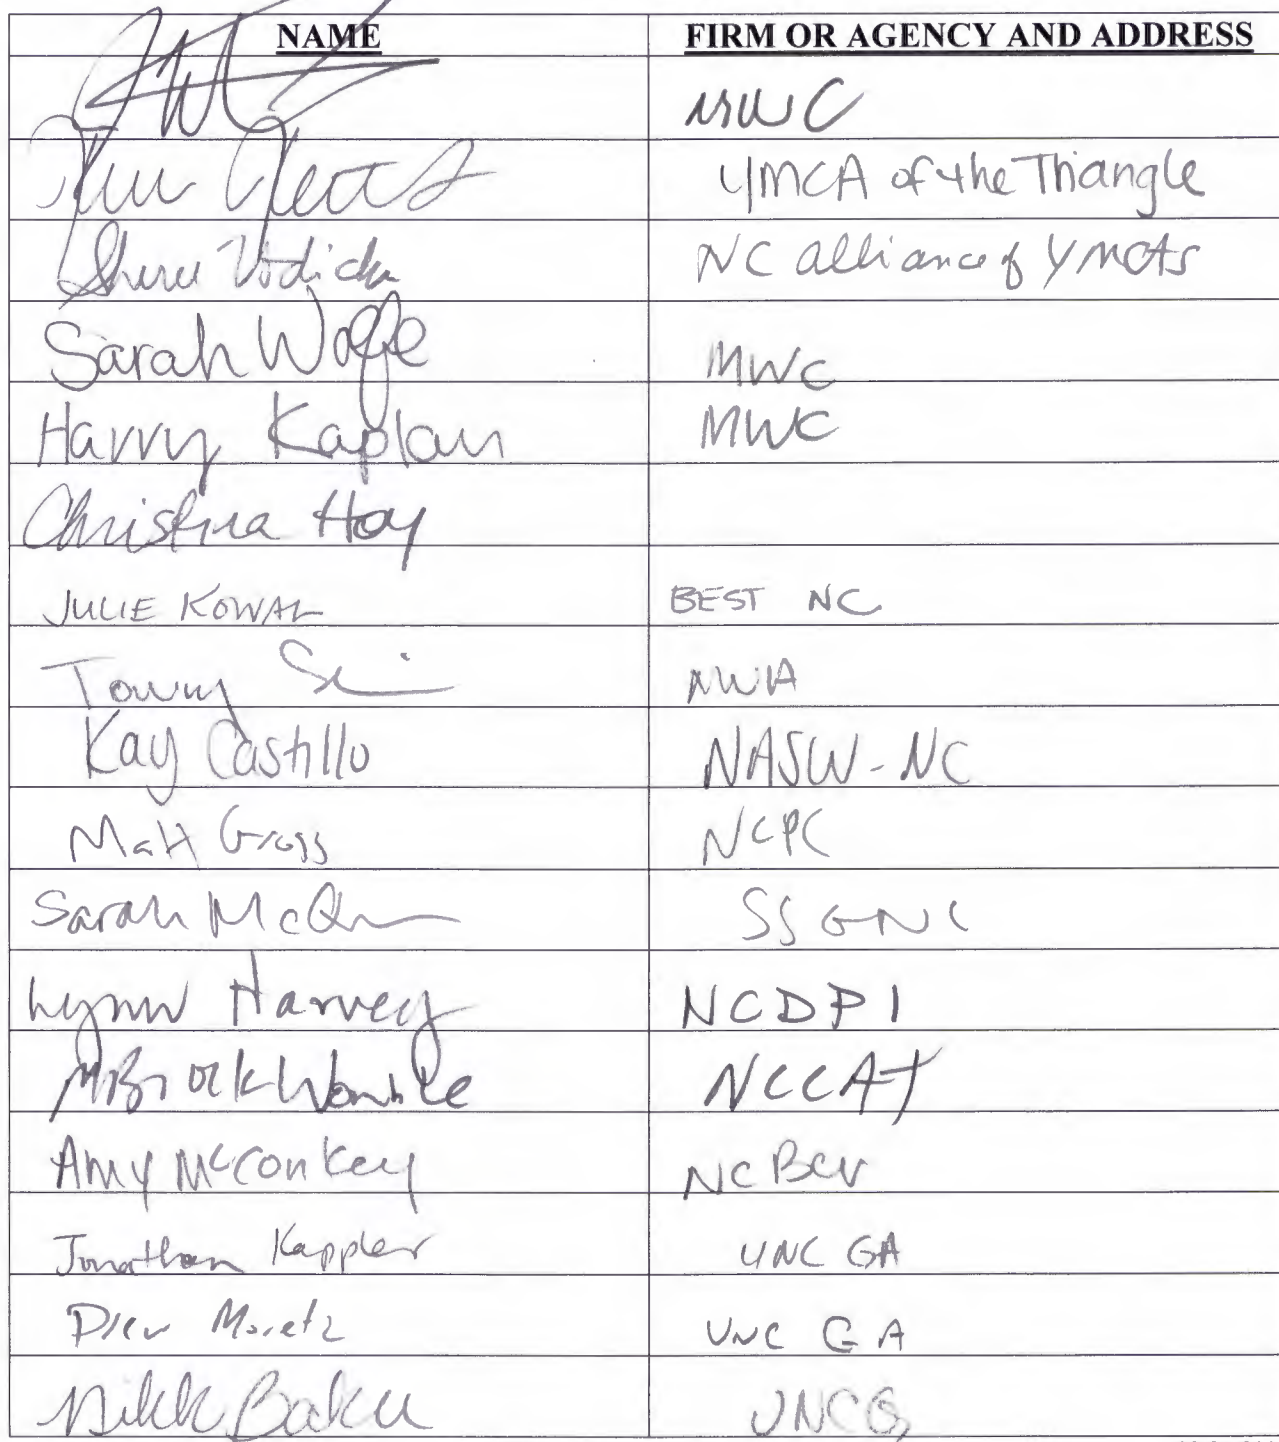 NAME FIRM OR AGENCY AND ADDRESS
MWC
YMCA of the Triangle
Sheree Vodicka NC alliance of YMCAs
Sarah Wolfe MWC
Harry Kaplan MWC
Christina Hoy
JULIE KOWAL BEST NC
NWA
Kay Castillo NASW-NC
Matt Gross NCPC
Sarah SSGNC
Lynn Harvey NCDPI
M Brock Womble NCCAT
Amy McConkey
Jonathan Kappler UNC GA
Drew Moretz UNC GA
UNCG